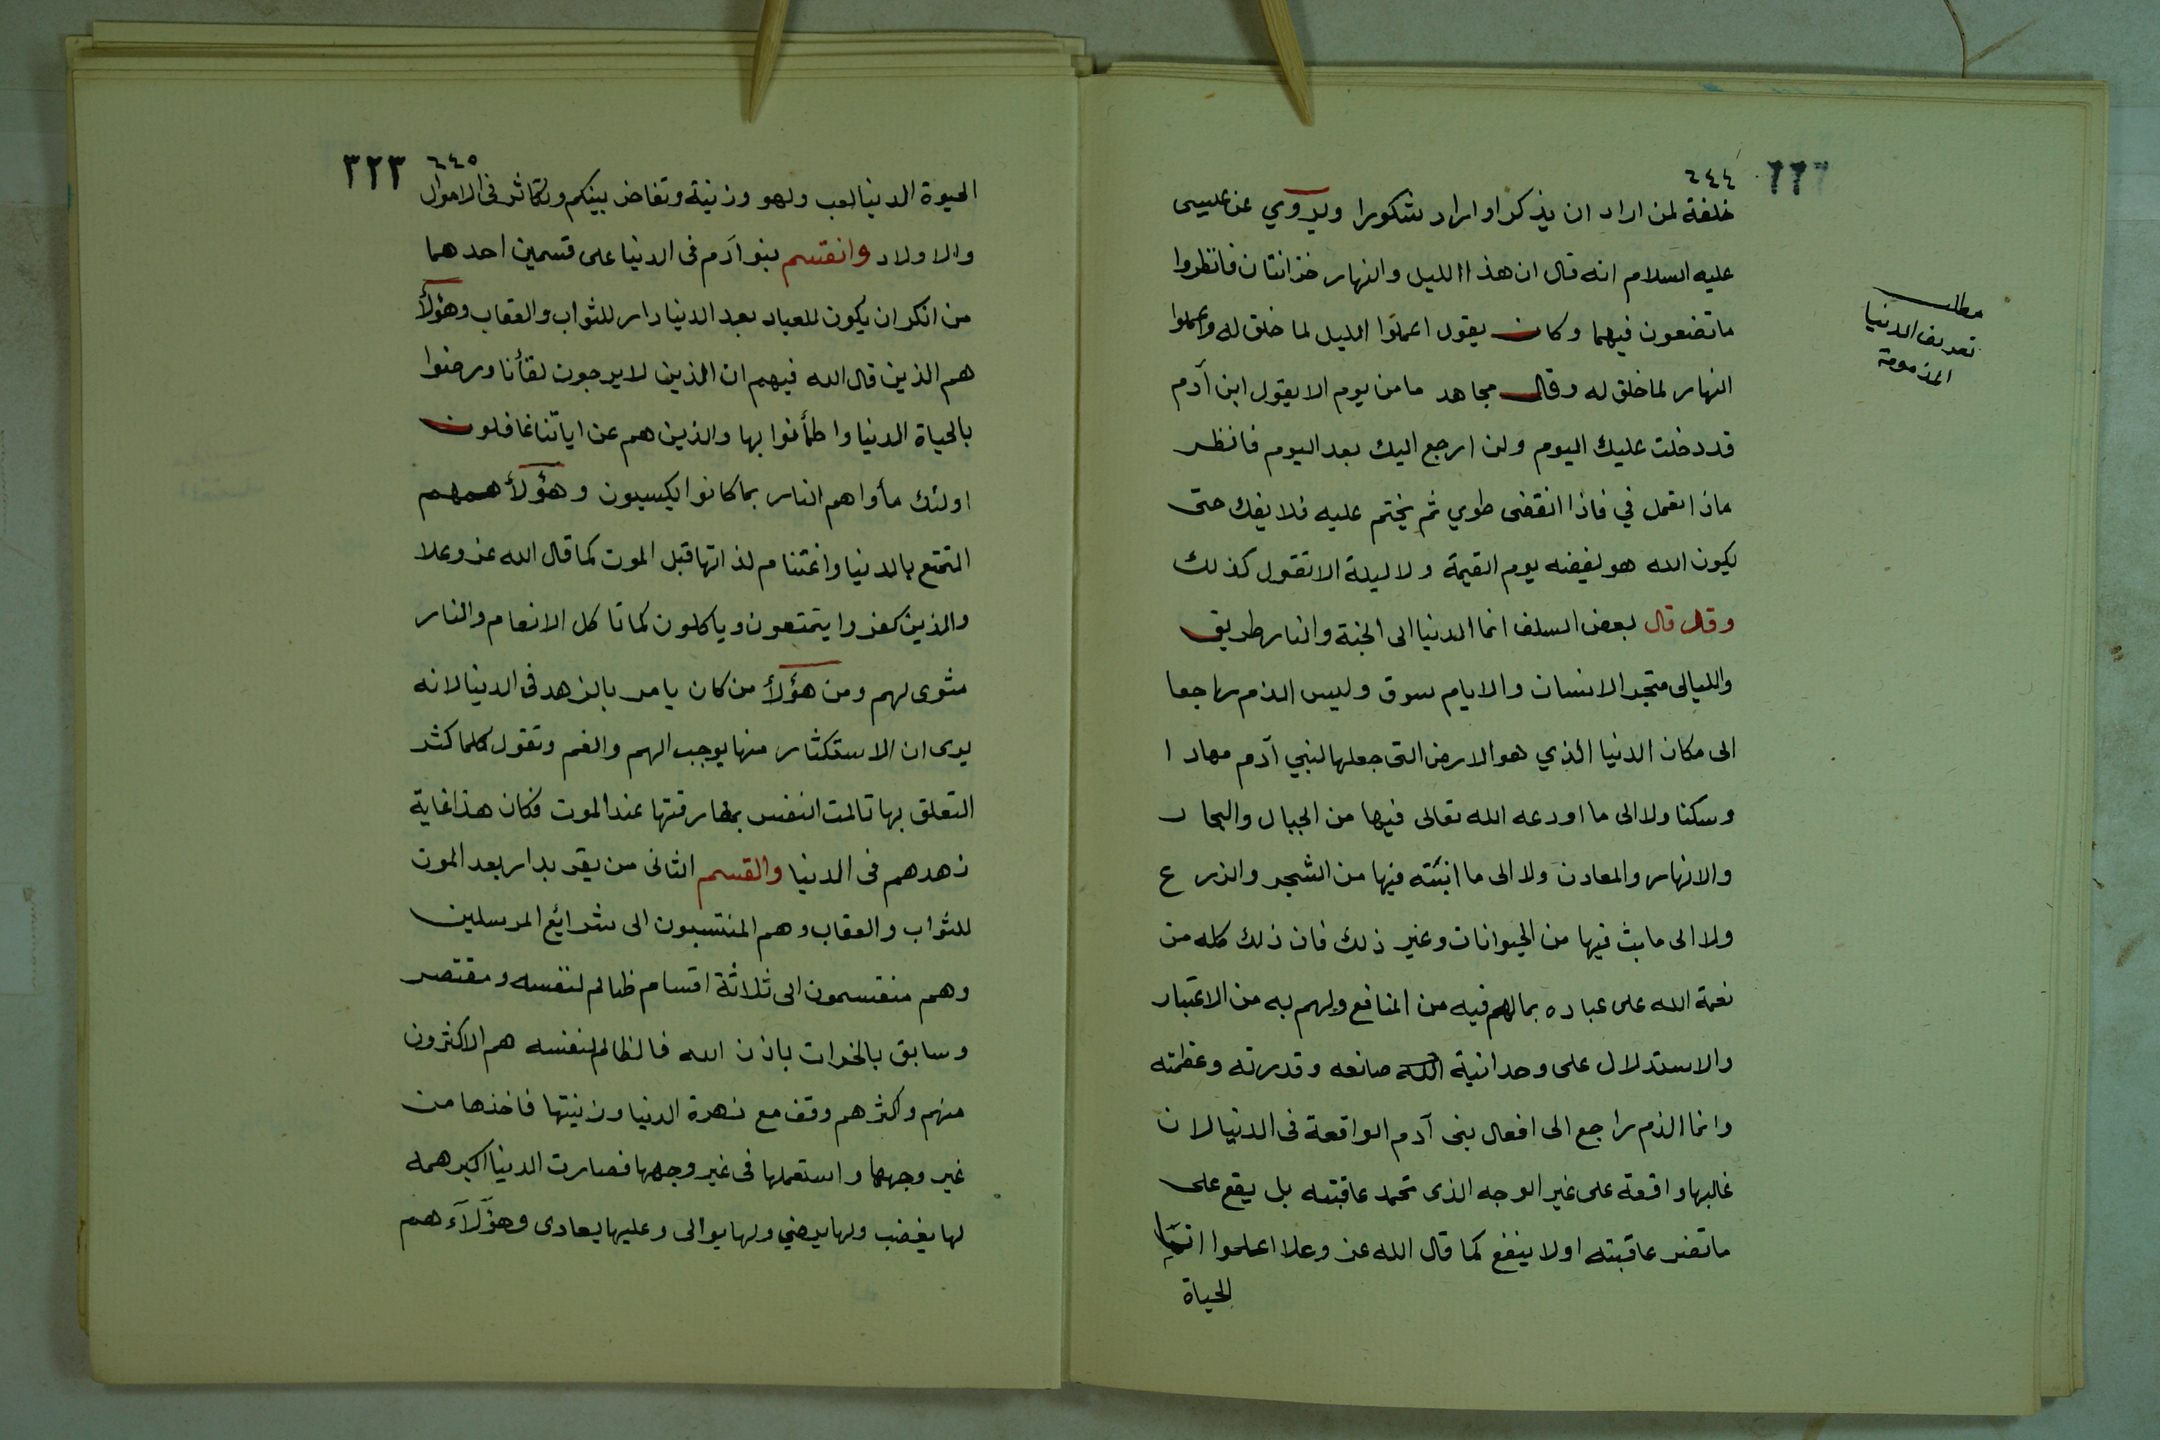 ٦٤٤
خلفة لمن اراد ان يذكر او اراد شكورا ويروي عن عيسى
عليه السلام انه قال ان هذا الليل والنهار خزانتان فانظروا
ماتضعون فيهما وكان يقول اعملوا الليل لما خلق له واعملوا
النهار لما خلق له وقال مجاهد مامن يوم الا يقول ابن آدم
قد دخلت عليك اليوم ولن ارجع اليك بعد اليوم فانظر
ماذا تعمل في فاذا انقضى طوي ثم يختم عليه فلا يفك حتى
يكون الله هو يفضه يوم القيمة ولا ليلة الا تقول كذلك
وقد قال بعض السلف انما الدنيا الى الجنة والنار طريق
والليالى متجر الانسان والايام سوق وليس الذم راجعا
الى مكان الدنيا الذي هو الارض التى جعلها لبني آدم مهادا
وسكنا ولا الى ما اودعه الله تعالى فيها من الجبال والبحار
والانهار والمعادن ولا الى ما انبته فيها من الشجر والزرع
ولا الى مابث فيها من الحيوانات وغير ذلك فان ذلك كله من
نعمة الله على عباده بمالهم فيه من المنافع ولهم به من الاعتبار
والاستدلال على وحدانية الله صانعه وقدرته وعظمته
وانما الذم راجع الى افعال بنى آدم الواقعة فى الدنيا لان
غالبها واقعة على غير الوجه الذى تحمد عاقبته بل يقع على
ماتضر عاقبته اولا ينفع كما قال الله عز وعلا اعلموا انما
الحياة
مطلب
تعريف الدنيا
المذمومة
٦٤٥ ٣٢٣
الحيوة الدنيا لعب ولهو وزينة وتفاخر بينكم وتكاثر فى الاموال
والاولاد وانقسم بنو آدم فى الدنيا على قسمين احدهما
من انكر ان يكون للعباد بعد الدنيا دار للثواب والعقاب وهؤلأ
هم الذين قال الله فيهم ان الذين لا يرجون لقأنا ورضوا
بالحياة الدنيا واطمأنوا بها والذين هم عن اياتنا غافلون
اولئك مأواهم النار بما كانوا يكسبون وهؤلأ همهم
التمتع بالدنيا واغتنام لذاتها قبل الموت كما قال الله عز وعلا
والذين كفروا يتمتعون وياكلون كما تاكل الانعام والنار
مثوى لهم ومن هؤلأ من كان يامر بالزهد فى الدنيا لانه
يرى ان الاستكثار منها يوجب الهم والغم وتقول كلما كثر
التعلق بها تالمت النفس بمفارقتها عند الموت فكان هذا غاية
زهدهم فى الدنيا والقسم الثانى من يقر بدار بعد الموت
للثواب والعقاب وهم المنتسبون الى شرائع المرسلين
وهم منقسمون الى ثلاثة اقسام ظالم لنفسه ومقتصر
وسابق بالخيرات باذن الله فالظالم لنفسه هم الاكثرون
منهم واكثرهم وقف مع زهرة الدنيا وزينتها فاخذها من
غير وجهها واستعملها فى غير وجهها فصارت الدنيا اكبر همه
لها يغضب ولها يرضي ولها يوالى وعليها يعادى وهؤلآء هم